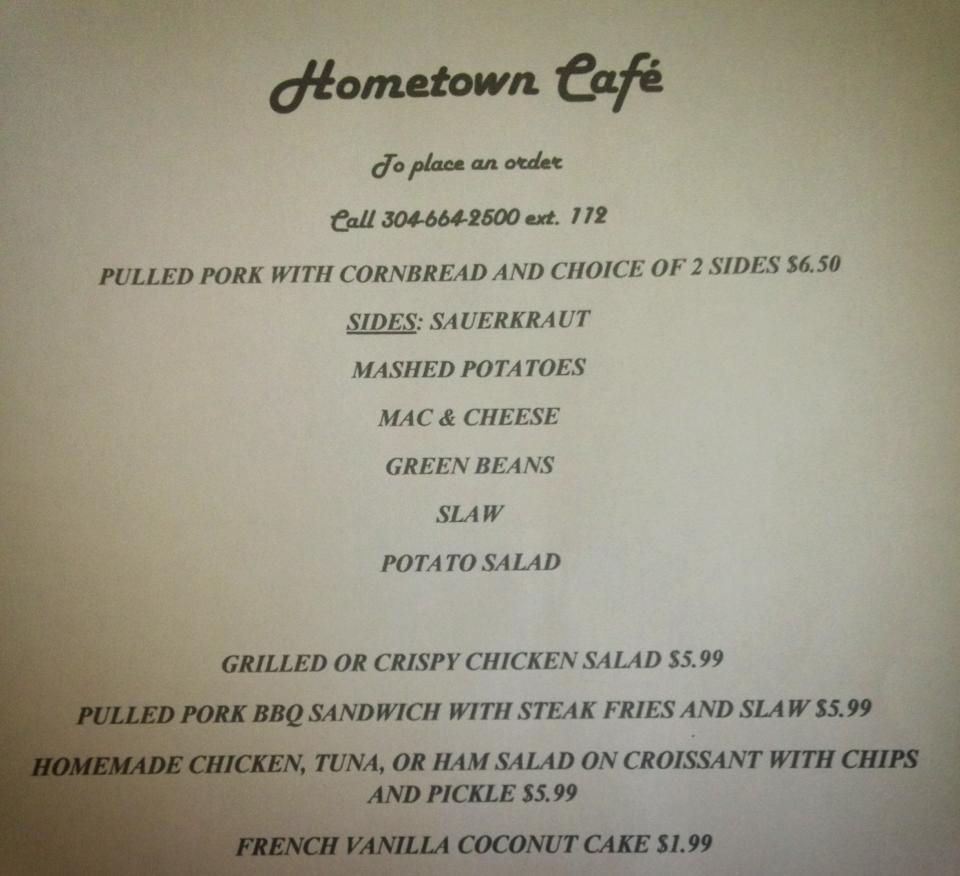 Hometown Café
To place an order
Call 304-664-2500 ext. 112
PULLED PORK WITH CORNBREAD AND CHOICE OF 2 SIDES $6.50
SIDES: SAUERKRAUT
MASHED POTATOES
MAC & CHEESE
GREEN BEANS
SLAW
POTATO SALAD
GRILLED OR CRISPY CHICKEN SALAD $5.99
PULLED PORK BBQ SANDWICH WITH STEAK FRIES AND SLAW $5.99
HOMEMADE CHICKEN, TUNA, OR HAM SALAD ON CROISSANT WITH CHIPS
AND PICKLE $5.99
FRENCH VANILLA COCONUT CAKE $1.99